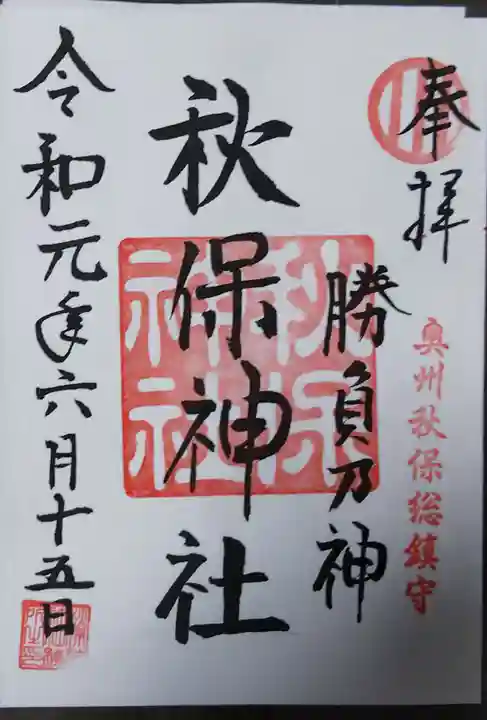 奉拝
奥州秋保総鎮守
勝負乃神
秋保神社
秋保
神社
令和元年六月十五日